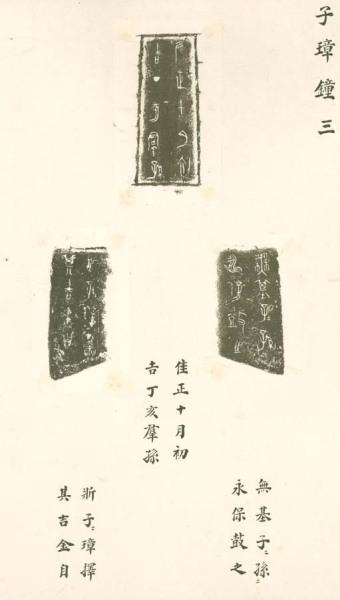 子璋鐘三
隹正十月初
吉丁亥羣孫
斨子〻璋擇
其吉金自
無基子〻孫〻
永保鼓之